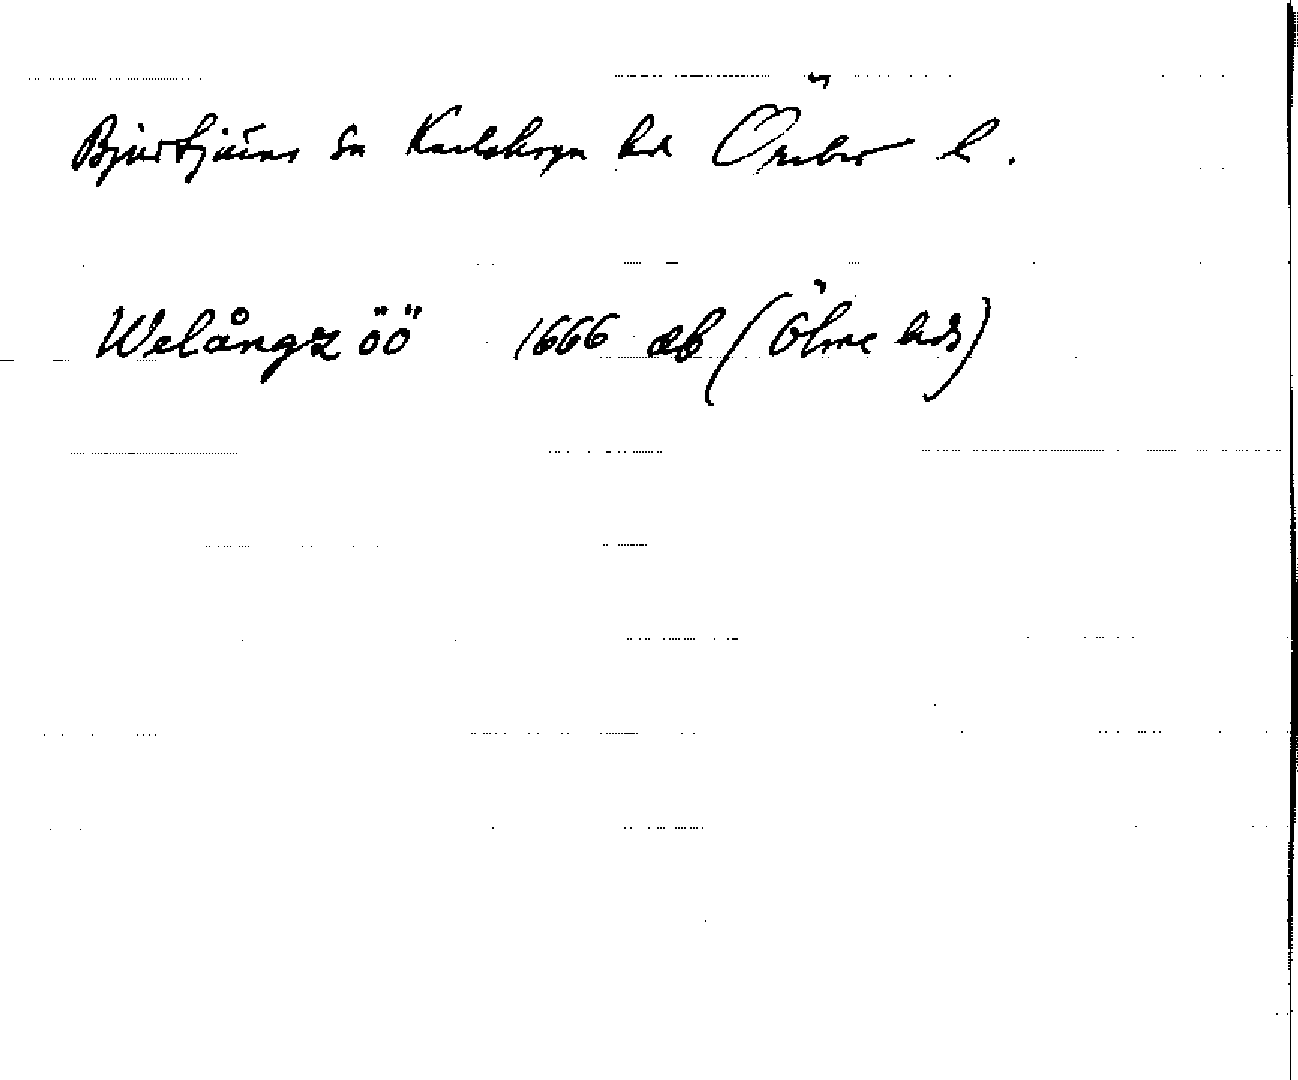 Bjurtjärns sn Karlskoga hd Örebro l.
Welångz öö 1666 æb (Ölme hds)